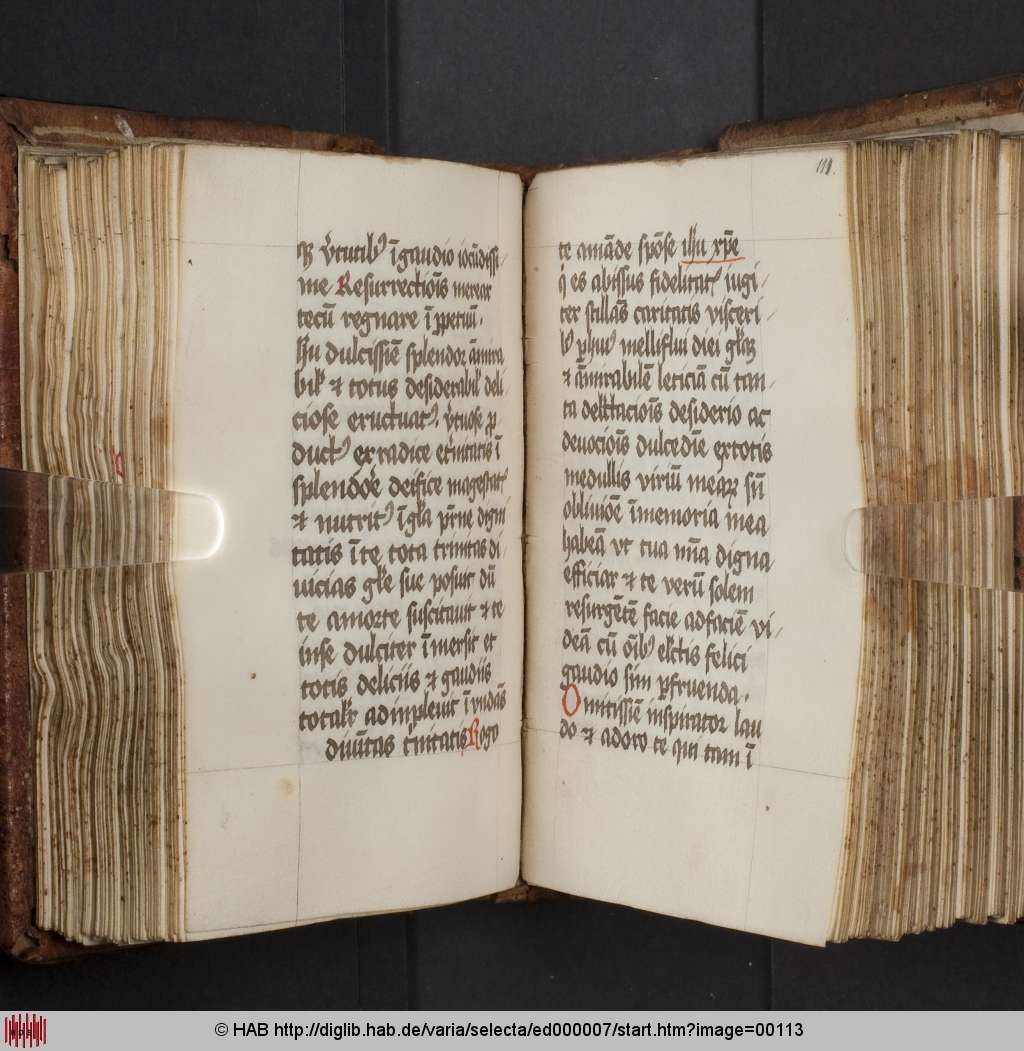 qꝫ v̾tutib⁹ ī gaudio iocūdissi-
me Resurrectiōis merear
tecū regnare ī ꝑpetuū.
Ihu dulcissiē splendor āmira
bil' et totus desiderabil' deli-
ciose eructuat⁹, v̾tuose ꝓ
duct⁹ ex radice et̾nitatis ī
splendore deifice magestat⁹
et nutrit⁹ ī gl̄a pr̄ne digni
tatis ī te tota trinitas di-
uicias gl̄e sue posuit dū
te a morte suscitauit et te
in se dulciter īmersit et
totis deliciis et gaudiis
total'r adinpleuit ī vndās
diuītas t̾nitatis Rogo
111.
te amāde spōse ihu xp̄e
q̇ es abissus fidelitat⁹ iugi-
ter stillās caritatis visceri-
b⁹ ꝑ hui⁹ melliflui diei gl̄aꝫ
et āmirabilē leticiā cū tan-
ta delc̄tacioīs desiderio ac
deuociōis dulcedīe ex totis
medullis viriū mearꝝ sn̄
obliuiōe ī memoria mea
habeā vt tua mīa digna
efficiar et te verū solem
resurgētē facie ad faciē vi-
deā cū oīb⁹ elc̄tis felici
gaudio sim ꝑfruenda.
O mitissiē inspirator lau
do et adoro te qui tam ī
© HAB http://diglib.hab.de/varia/selecta/ed000007/start.htm?image=00113